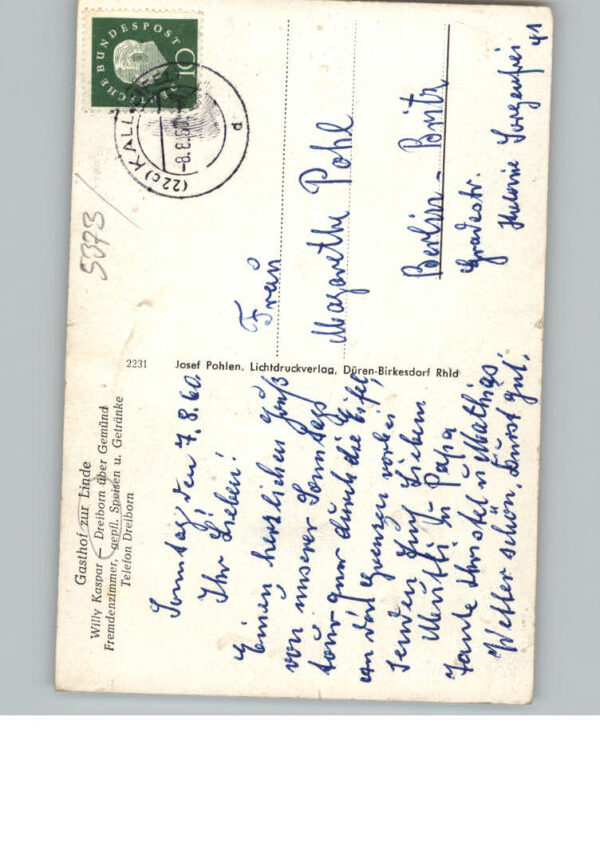 Gasthof zur Linde
Willy Kaspar - Dreiborn über Gemünd
Fremdenzimmer, gepfl. Speisen u. Getränke
Telefon Dreiborn
2231
Josef Pohlen, Lichtdruckverlag, Düren-Birkesdorf Rhld
Sonntag, den 7.8.60
Ihr Lieben!
Einen herzlichen Gruß
von unserer Sonntags
tour quer durch die Eifel,
an der Grenzen vorbei
senden Euch Lieben
Mutti u. Papa
Tante Christel u Mathias
Wetter schön, Durst gut.
5373
DEUTSCHE BUNDESPOST
10
(22c) KALL
-8.8.60
Frau
Margarethe Pohl
Berlin - Britz
Gradestr.
Kolonie Sorgenfrei
41